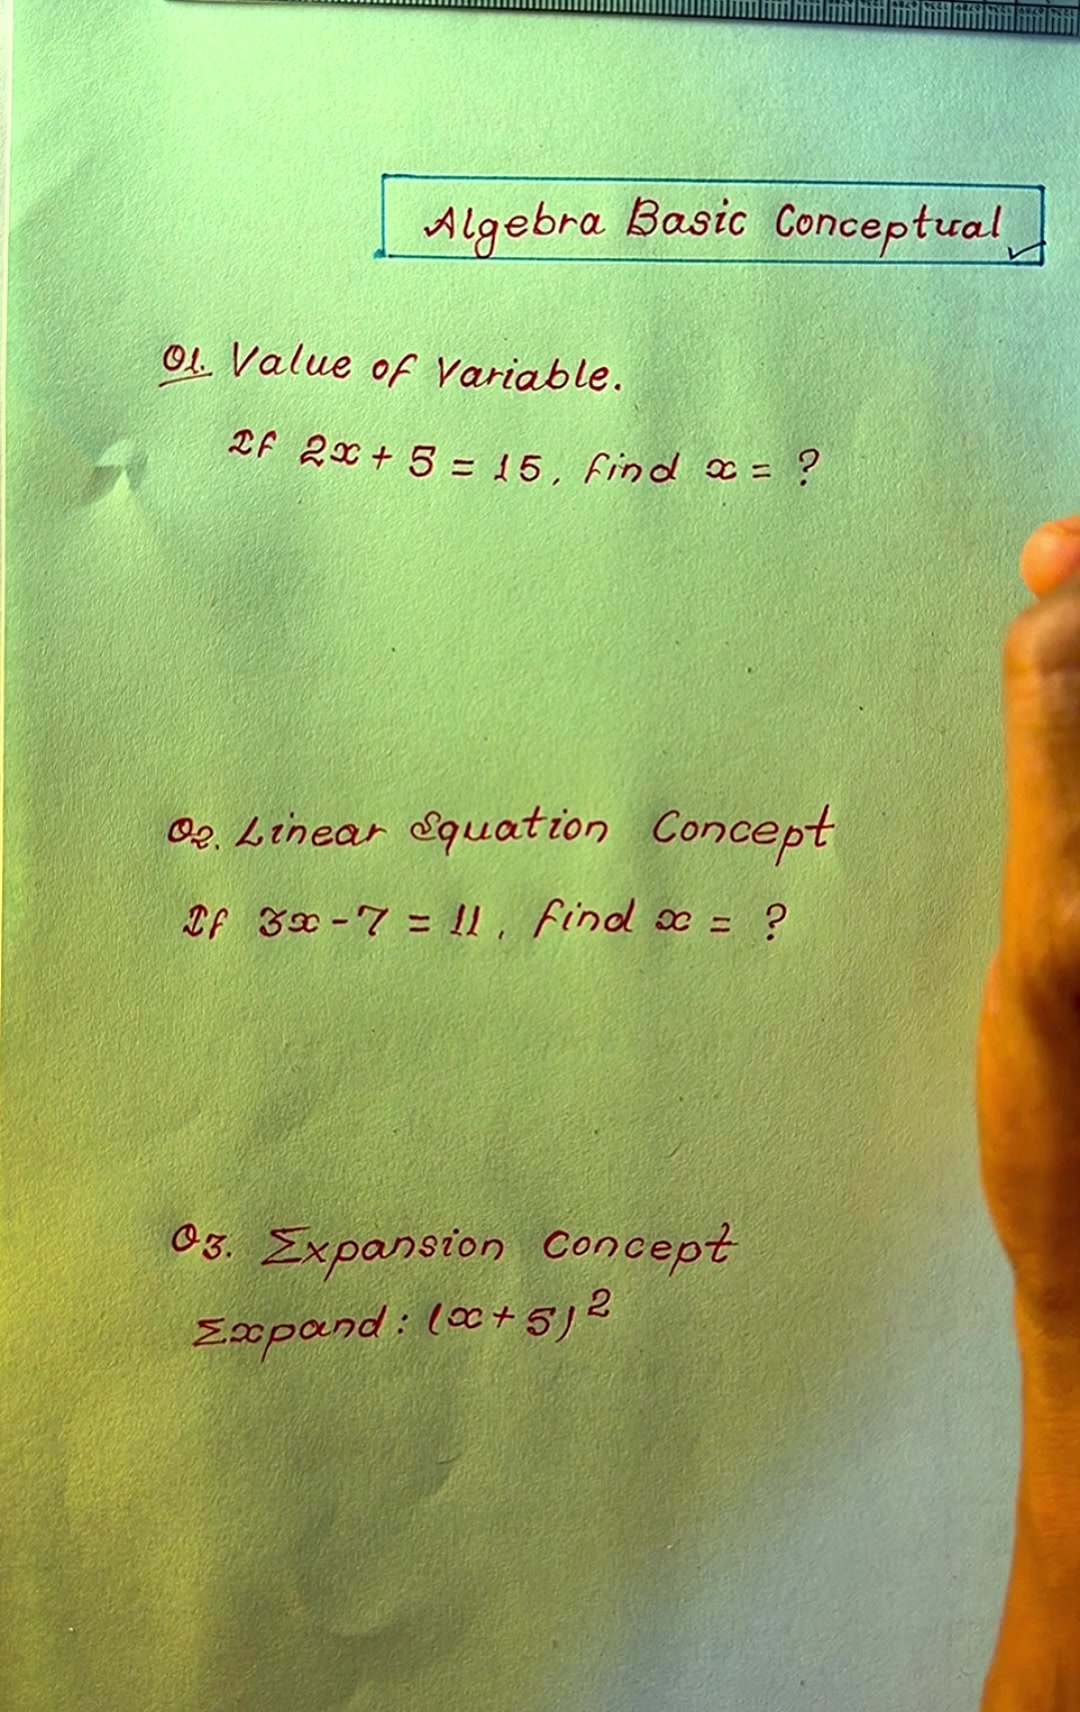 Algebra Basic Conceptual
Q1. Value of Variable.
If 2x + 5 = 15, find x = ?
Q2. Linear Equation Concept
If 3x - 7 = 11, find x = ?
Q3. Expansion Concept
Expand : (x + 5)²